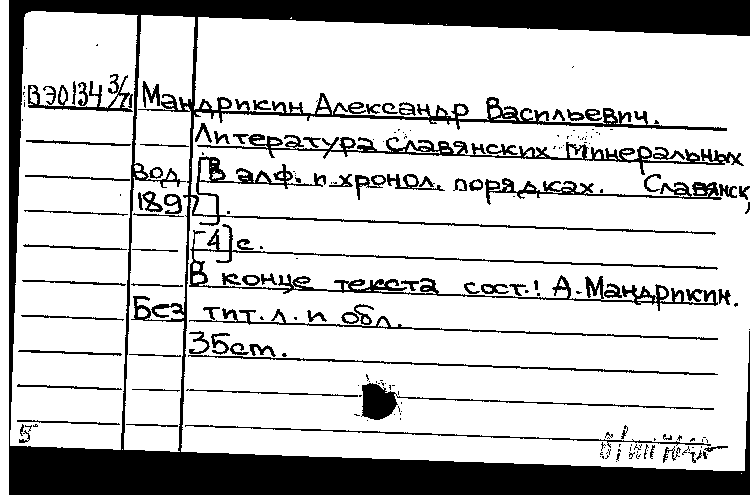 ВЭ0134 3/71 Мандрикин, Александр Васильевич.
Литература славянских минеральных
вод [В алф. и хронол. порядках. Славянск,
1897].
[4] с.
В конце текста сост.: А. Мандрикин.
Без тит. л. и обл.
35 см.
5